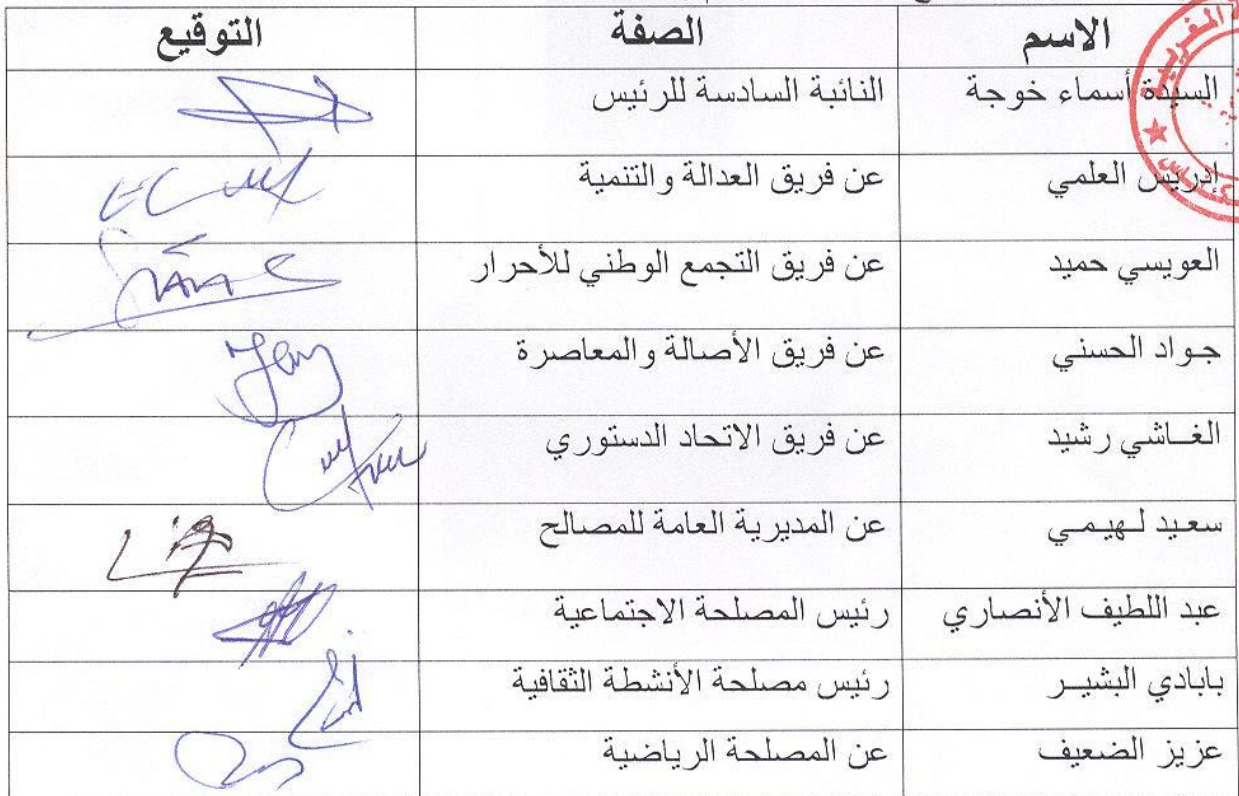 الاسم الصفة التوقيع
السيدة أسماء خوجة النائبة السادسة للرئيس
إدريس العلمي عن فريق العدالة والتنمية
العويسي حميد عن فريق التجمع الوطني للأحرار
جواد الحسني عن فريق الأصالة والمعاصرة
الغاشي رشيد عن فريق الاتحاد الدستوري
سعيد لهيمي عن المديرية العامة للمصالح
عبد اللطيف الأنصاري رئيس المصلحة الاجتماعية
بابادي البشير رئيس مصلحة الأنشطة الثقافية
عزيز الضعيف عن المصلحة الرياضية